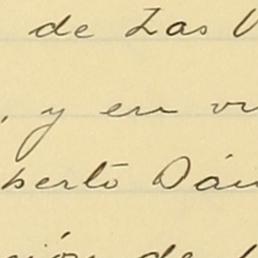 de Las V
, y en vi
berto Dáv
ión de